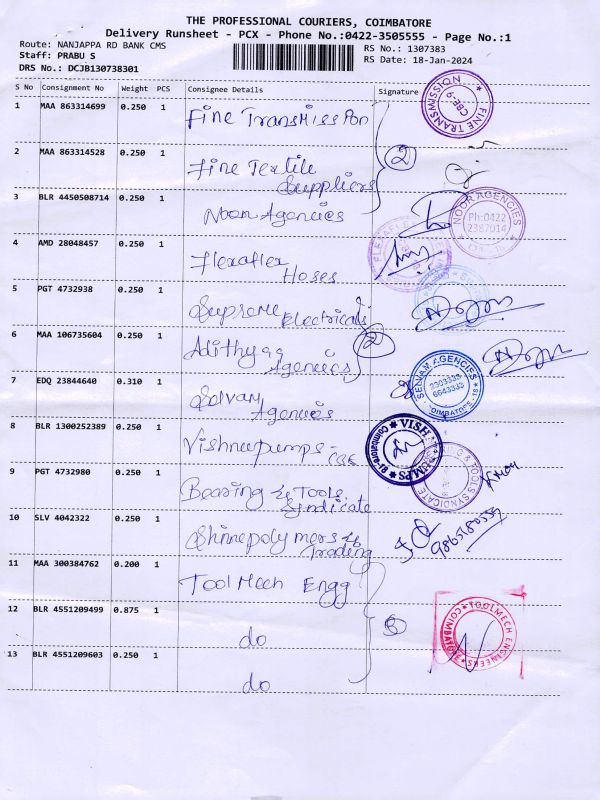 THE PROFESSIONAL COURIERS, COIMBATORE
Delivery Runsheet - PCX - Phone No.:0422-3505555 - Page No.:1
Route: NANJAPPA RD BANK CMS
Staff: PRABU S
DRS No.: DCJB130738301
RS No.: 1307383
RS Date: 18-Jan-2024
S No Consignment No Weight PCS Consignee Details Signature
1 MAA 863314699 0.250 1 Fine Transmission
FINE TRANSMISSION
CBE-9
2 MAA 863314528 0.250 1 Fine Textile
Suppliers
2
3 BLR 4450508714 0.250 1 Noor Agencies
NOOR AGENCIES
Ph:0422
2387014
4 AMD 28048457 0.250 1 Flexaflex
Hoses
5 PGT 4732938 0.250 1 Supreme Electricals
6 MAA 106735604 0.250 1 Adithyaa
Agencies
2
7 EDQ 23844640 0.310 1 Selvam
Agencies
AGENCIES
8 BLR 1300252389 0.250 1 Vishnupumps -
CBE
VISH
Coimbatore-18
9 PGT 4732980 0.250 1 Bearing & Tools
Syndicate
& TOOLS SYNDICATE
10 SLV 4042322 0.250 1 Shinepolymers &
Trading
11 MAA 300384762 0.200 1 ToolMech Engg
12 BLR 4551209499 0.875 1 do
3
TOOLMECH ENGINEERS
13 BLR 4551209603 0.250 1 do